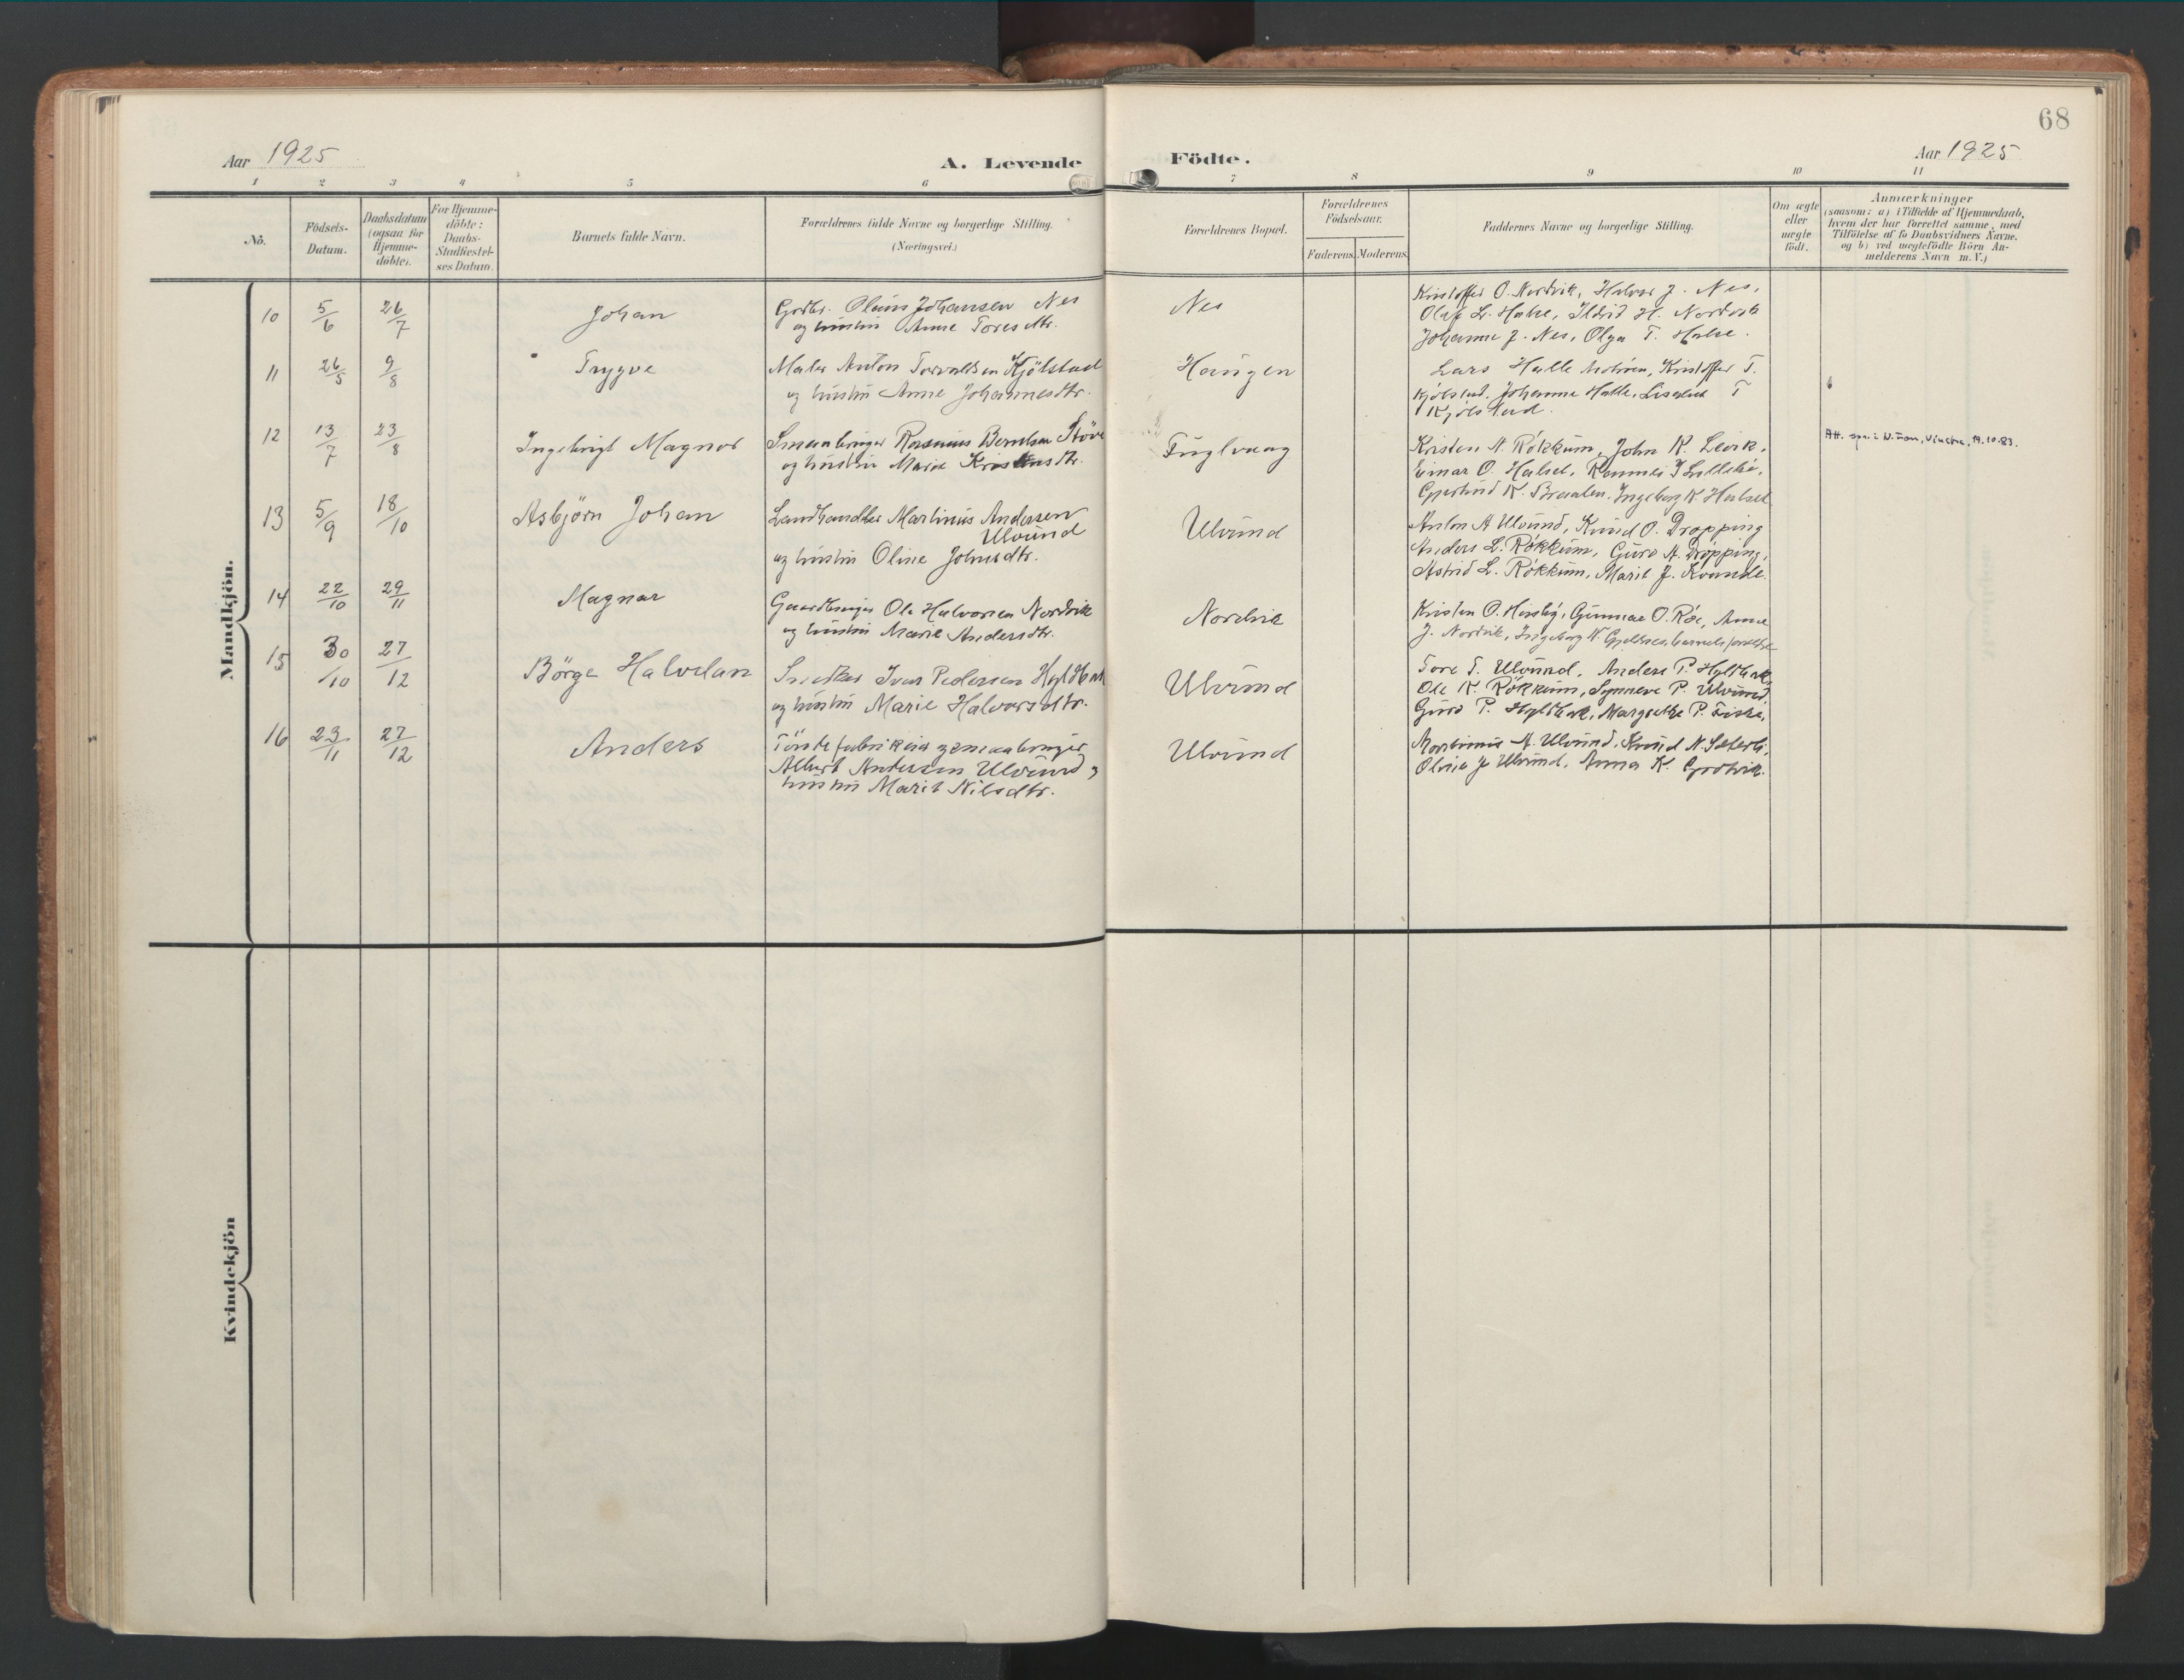 68
Aar 1925
A. Levende Födte.
Aar 1925
1 2 3 4 5 6 7 8 9 10 11
No.
Födsels-Datum.
Daabsdatum (ogsaa for Hjemme-döbte).
For Hjemme-döbte: Daabs-Stadfæstel-ses Datum.
Barnets fulde Navn.
Forældrenes fulde Navne og borgerlige Stilling.
(Næringsvei.)
Forældrenes Bopæl.
Forældrenes Födselsaar.
Faderens. Moderens.
Faddernes Navne og borgerlige Stilling.
Om ægte eller uægte födt.
Anmærkninger
(saasom: a) i Tilfælde af Hjemmedaab,
hvem der har forrettet samme, med
Tilföielse af to Daabsvidners Navne,
og b) ved uægtefödte Börn An-
melderens Navn m. V.)
Mandkjön.
10 5/6 26/7 Johan
Grdbr. Olaus Johansen Nes
og hustru Anne Toresdtr.
Nes
Kristoffer O. Nordvik, Halvor J. Nes,
Olaf L. Halse, Ildrid H. Nordvik
Johanna J. Nes, Olga T. Halse.
11 26/5 9/8 Trygve
Maler Anton Torvaldsen Kjölstad
og hustru Anne Johannesdtr.
Haugen
Lars Halle, Kristoffer T.
Kjölstad, Johanna Halle, T
Kjölstad.
12 13/7 23/8 Ingebrigt Magnor
Smaabruger Rasmus Berntsen
og hustru Marie Kristensdtr.
Fuglvaag
Kristen A. Rökkum, John K. Leirk,
Einar O. Halset,
K. Braaten, Ingeborg K. Halset
Vinstra, 19.10.83.
13 5/9 18/10 Asbjörn Johan
Landhandler Martinus Andersen
Ulvund
og hustru Oline Johnsdtr.
Ulvund
Anton A Ulvund, Knud O. Dröpping
Anders L. Rökkum, Guro A. Dröpping,
Astrid L. Rökkum, Marit J. Kvande.
14 22/10 29/11 Magnar
Gaardbruger Ole Halvorsen Nordvik
og hustru Marie Andersdtr.
Nordvik
Kristen O. Gunnar O. Röe, Anne
J. Nordvik, Ingeborg N. barnets forældre
15 30/10 27/12 Börge Halvdan
Snedker Ivar Pedersen Hyldbak
og hustru Marie Halvorsdtr.
Ulvund
Tore T. Ulvund, Anders P. Hyldbak,
Ole K. Rökkum, Synneve P. Ulvund,
Guro P. Hyldbak, Margrethe P. Fiske,
16 23/11 27/12 Anders
Töndefabrikeier smaabruger
Albert Andersen Ulvund og
hustru Marit Nilsdtr.
Ulvund
Martinus A. Ulvund, Knud N. Sæterli,
Oline J. Ulvund, Anna K. Grötvik.
Kvindekjön